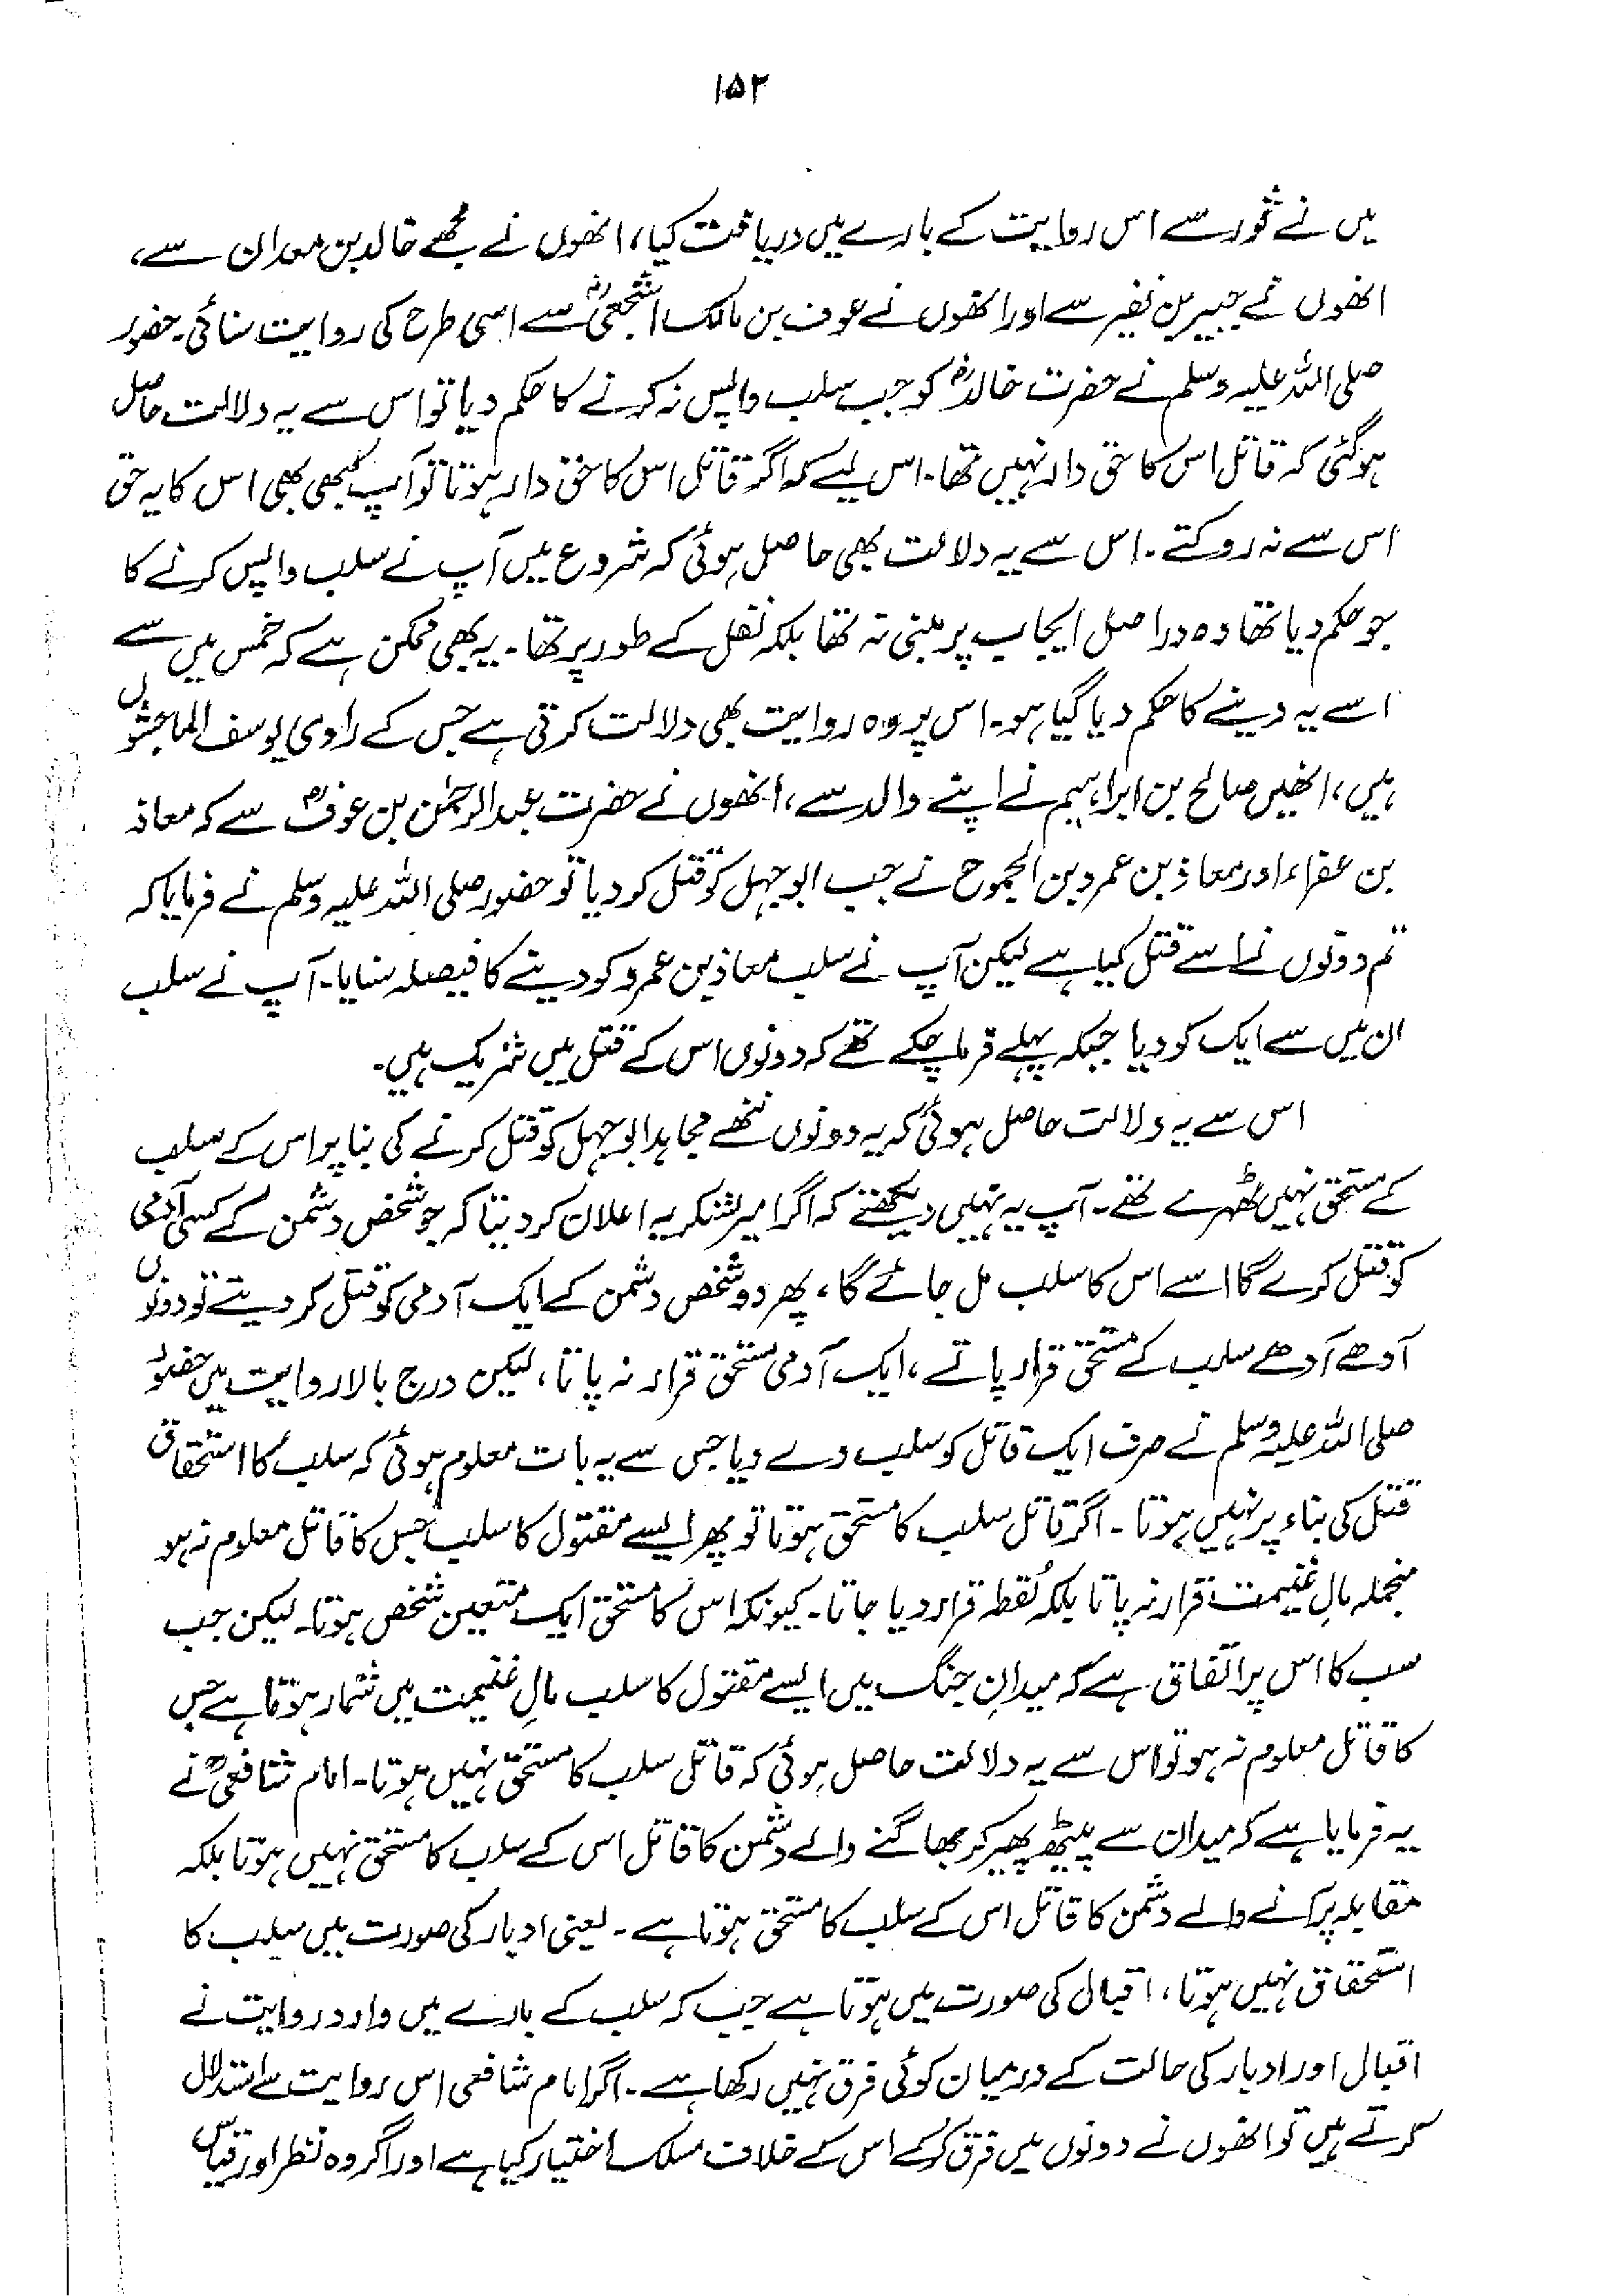 ۱۵۲
میں نے ثور سے اس روایت کے بارے میں دریافت کیا، انھوں نے مجھے خالد بن معدان سے،
انھوں نے جبیر بن نفیر سے اور انھوں نے عوف بن مالک اشجعیؓ سے اسی طرح کی روایت سنائی۔ حضور
صلی اللہ علیہ وسلم نے حضرت خالدؓ کو جب سلب واپس نہ کرنے کا حکم دیا تو اس سے یہ دلالت حاصل
ہوگئی کہ قاتل اس کا حق دار نہیں تھا۔ اس لیے کہ اگر قاتل اس کا حق دار ہوتا تو آپ کبھی بھی اس کا یہ حق
اس سے نہ روکتے۔ اس سے یہ دلالت بھی حاصل ہوئی کہ شروع میں آپ نے سلب واپس کرنے کا
جو حکم دیا تھا وہ دراصل ایجاب پر مبنی نہ تھا بلکہ نفل کے طور پر تھا۔ یہ بھی ممکن ہے کہ خمس میں سے
اسے یہ دینے کا حکم دیا گیا ہو۔ اس پر وہ روایت بھی دلالت کرتی ہے جس کے راوی یوسف الماجشوں
ہیں، انھیں صالح بن ابراہیم نے اپنے والد سے، انھوں نے حضرت عبدالرحمٰن بن عوفؓ سے کہ معاذ
بن عفراء اور معاذ بن عمرو بن الجموح نے جب ابوجہل کو قتل کر دیا تو حضور صلی اللہ علیہ وسلم نے فرمایا کہ
تم دونوں نے اسے قتل کیا ہے لیکن آپ نے سلب معاذ بن عمرو کو دینے کا فیصلہ سنایا۔ آپ نے سلب
ان میں سے ایک کو دیا جبکہ پہلے فرما چکے تھے کہ دونوں اس کے قتل میں شریک ہیں۔
اس سے یہ دلالت حاصل ہوئی کہ یہ دونوں ننھے مجاہد ابوجہل کو قتل کرنے کی بنا پر اس کے سلب
کے مستحق نہیں ٹھہرے تھے۔ آپ یہ نہیں دیکھتے کہ اگر امیر لشکر یہ اعلان کر دیتا کہ جو شخص دشمن کے کسی آدمی
کو قتل کرے گا اسے اس کا سلب مل جائے گا، پھر دو شخص دشمن کے ایک آدمی کو قتل کر دیتے تو دونوں
آدھے آدھے سلب کے مستحق قرار پاتے، ایک آدمی مستحق قرار نہ پاتا، لیکن درج بالا روایت میں حضور
صلی اللہ علیہ وسلم نے صرف ایک قاتل کو سلب دے دیا جس سے یہ بات معلوم ہوئی کہ سلب کا استحقاق
قتل کی بناء پر نہیں ہوتا۔ اگر قاتل سلب کا مستحق ہوتا تو پھر ایسے مقتول کا سلب جس کا قاتل معلوم نہ ہو
منجملہ مالِ غنیمت قرار نہ پاتا بلکہ لُقطہ قرار دیا جاتا۔ کیونکہ اس کا مستحق ایک متعین شخص ہوتا۔ لیکن جب
سب کا اس پر اتفاق ہے کہ میدانِ جنگ میں ایسے مقتول کا سلب مالِ غنیمت میں شمار ہوتا ہے جس
کا قاتل معلوم نہ ہو تو اس سے یہ دلالت حاصل ہوئی کہ قاتل سلب کا مستحق نہیں ہوتا۔ امام شافعیؒ نے
یہ فرمایا ہے کہ میدان سے پیٹھ پھیر کر بھاگنے والے دشمن کا قاتل اس کے سلب کا مستحق نہیں ہوتا بلکہ
مقابلہ پر آنے والے دشمن کا قاتل اس کے سلب کا مستحق ہوتا ہے۔ یعنی ادبار کی صورت میں سلب کا
استحقاق نہیں ہوتا، اقبال کی صورت میں ہوتا ہے جب کہ سلب کے بارے میں وارد روایت نے
اقبال اور ادبار کی حالت کے درمیان کوئی فرق نہیں رکھا ہے۔ اگر امام شافعی اس روایت سے استدلال
کرتے ہیں تو انھوں نے دونوں میں فرق کرکے اس کے خلاف مسلک اختیار کیا ہے اور اگر وہ نظر اور قیاس